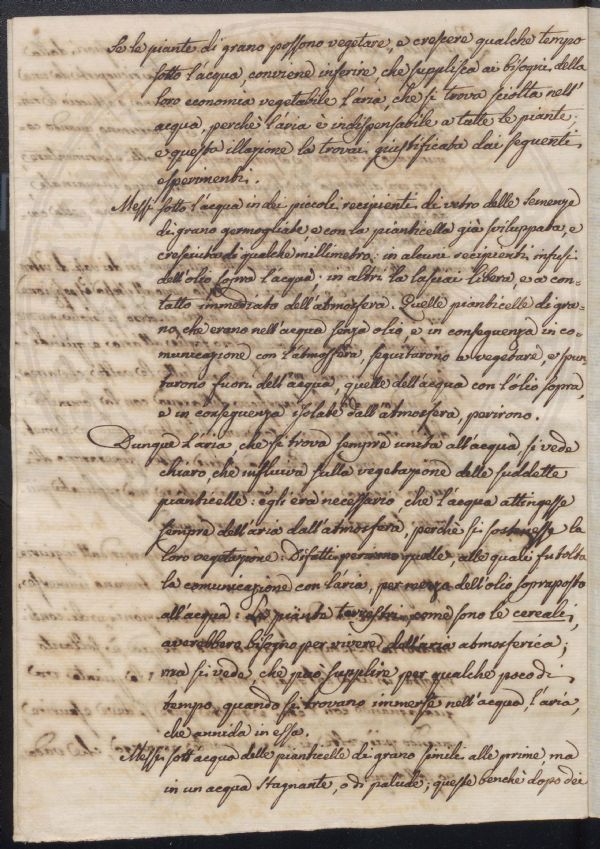 Se le piante di grano possono vegetare, e crescere qualche tempo
sotto l'acqua, conviene inferire che supplisca ai bisogni della
loro economia vegetabile l'aria, che si trova sciolta nell'
acqua, perchè l'aria è indispensabile a tutte le piante:
e questa illazione la trovai giustificata dai seguenti
esperimenti.
Messi sotto l'acqua in dei piccoli recipienti di vetro delle semenze
di grano germogliate, e con la pianticella già sviluppata, e
cresciuta di qualche millimetro: in alcuni recipienti infusi
dell'olio sopra l'acqua, in altri la lasciai libera, e a con-
tatto immediato dell'atmosfera. Quelle pianticelle di gra-
no, che erano nell'acqua senza olio, e in conseguenza in co-
municazione con l'atmosfera, seguitarono a vegetare, e spun-
tarono fuori dell'acqua, quelle dell'acqua con l'olio sopra,
e in conseguenza isolate dall'atmosfera, perirono.
Dunque l'aria, che si trova sempre unita all'acqua, si vede
chiaro, che influiva sulla vegetazione delle suddette
pianticelle: egli era necessario, che l'acqua attingesse
sempre dell'aria dall'atmosfera, perchè si sostenesse la
loro vegetazione. Difatti perirono quelle, alle quali fu tolta
la comunicazione con l'aria, per mezzo dell'olio soprapposto
all'acqua: Le piante terrestri come sono le cereali,
averebbero bisogno per vivere dell'aria atmosferica;
ma si vede, che può supplire per qualche poco di
tempo, quando si trovano immerse nell'acqua, l'aria,
che annida in essa.
Messi sott'acqua delle pianticelle di grano simili alle prime, ma
in un acqua stagnante, o di palude; queste benchè dopo dei